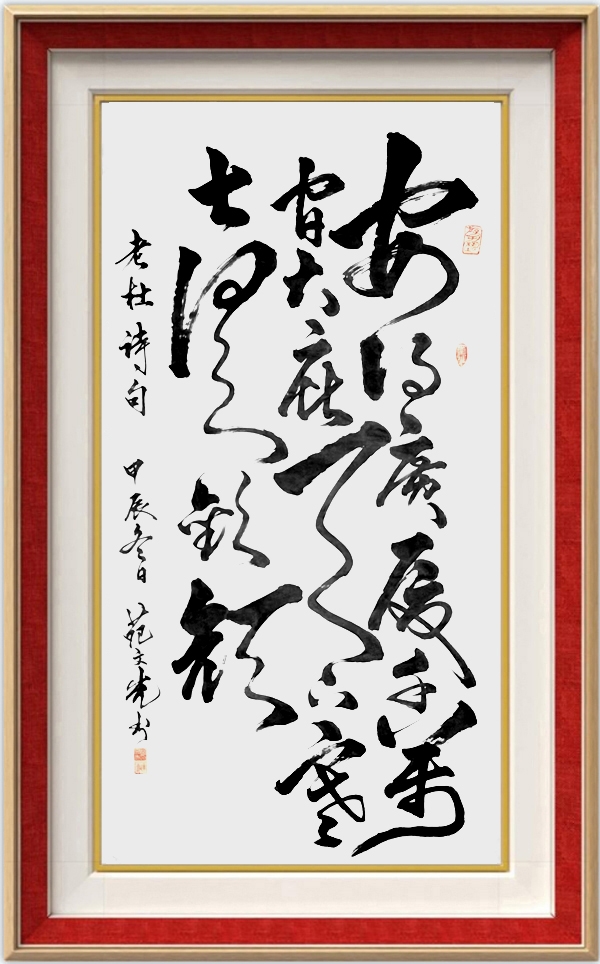 安得廣廈千萬
間大庇天下寒
士俱歡顏
老杜诗句 甲辰冬日 文 书